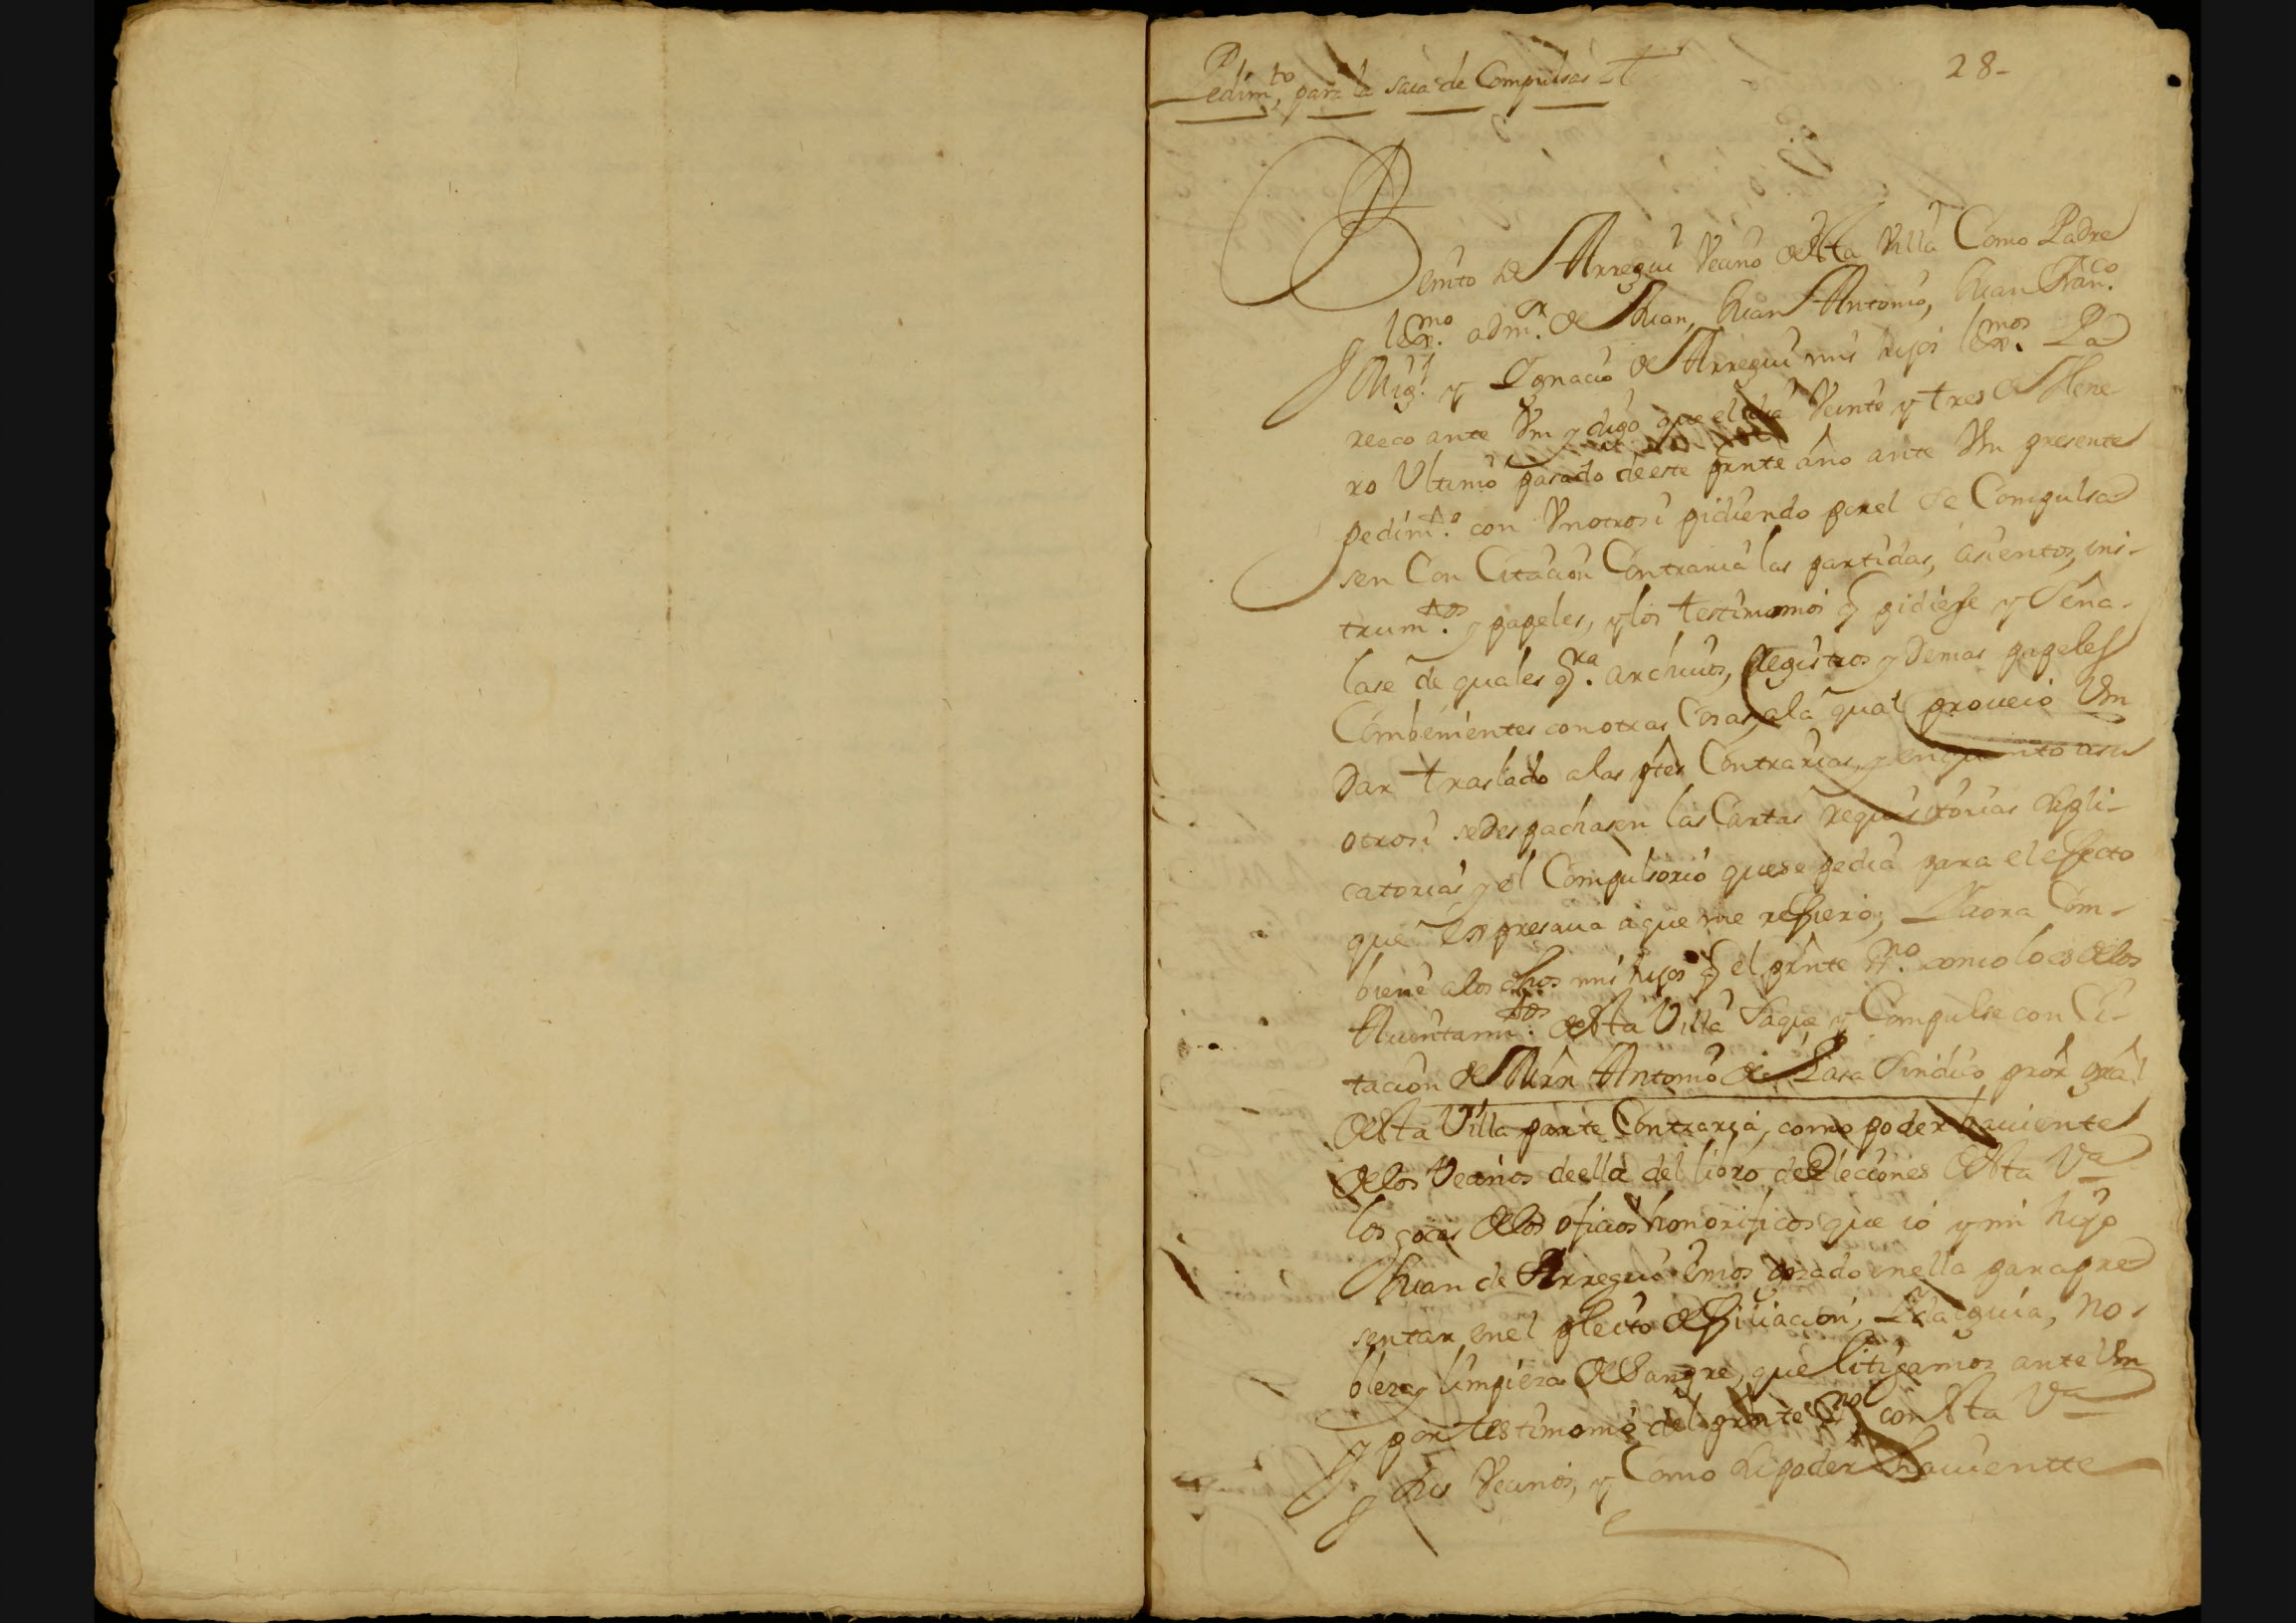 Pedimto, para la saca de Compulsas
28-
Benito de Arregui Vecino desta Villa Como Padre
lexmo admr de Juan, Juan Antonio, Juan Franco.
Migl. y Ygnacio de Arregui mis hijos lexmos. Pa
rezco ante Vm y digo que el dia Veinte y tres de Hene
ro Ultimo pasado de este prnte año ante Vm presente
pedimto. con Vnotrosi pidiendo porel se Compulsa
sen Con Citacion Contraria las partidas, asientos, ins-
trumtos. y papeles, y los testimonios q pidiesse y Seña-
lase de quales qra. archivos, Registros y Demas papeles
Combenientes con otras Cosas, ala qual proueio Vm
Dar traslado alas ptes Contrarias, y enquanto asu
otrosi sedespachasen las Cartas requisitorias depli-
catorias, y el Compulsorio quese pedia para el effecto
que Expresaua aque me refiero; Yaora Com-
biene alos dhos mis hijos q el prnte Esno. como lo es delos
Aiuntamtos. desta Villa Saque y Compulse con Ci-
tacion de Juan Antonio de Lasa Sindico pror gral
desta Villa parte Contraria, como poder hauiente
delos Vecinos deella del libro de Elecciones desta Va
los goces delos oficios honorificos que io y mi hijo
Juan de Arregui emos gozado enella para pre
sentar enel pleito de filiacion, Ydalguia, No-
bleza y limpieza de Sangre, que litigamos ante Vm
y por testimonio del prnte Esno con esta Va
y sus Vecinos, y Como su poder hauientte